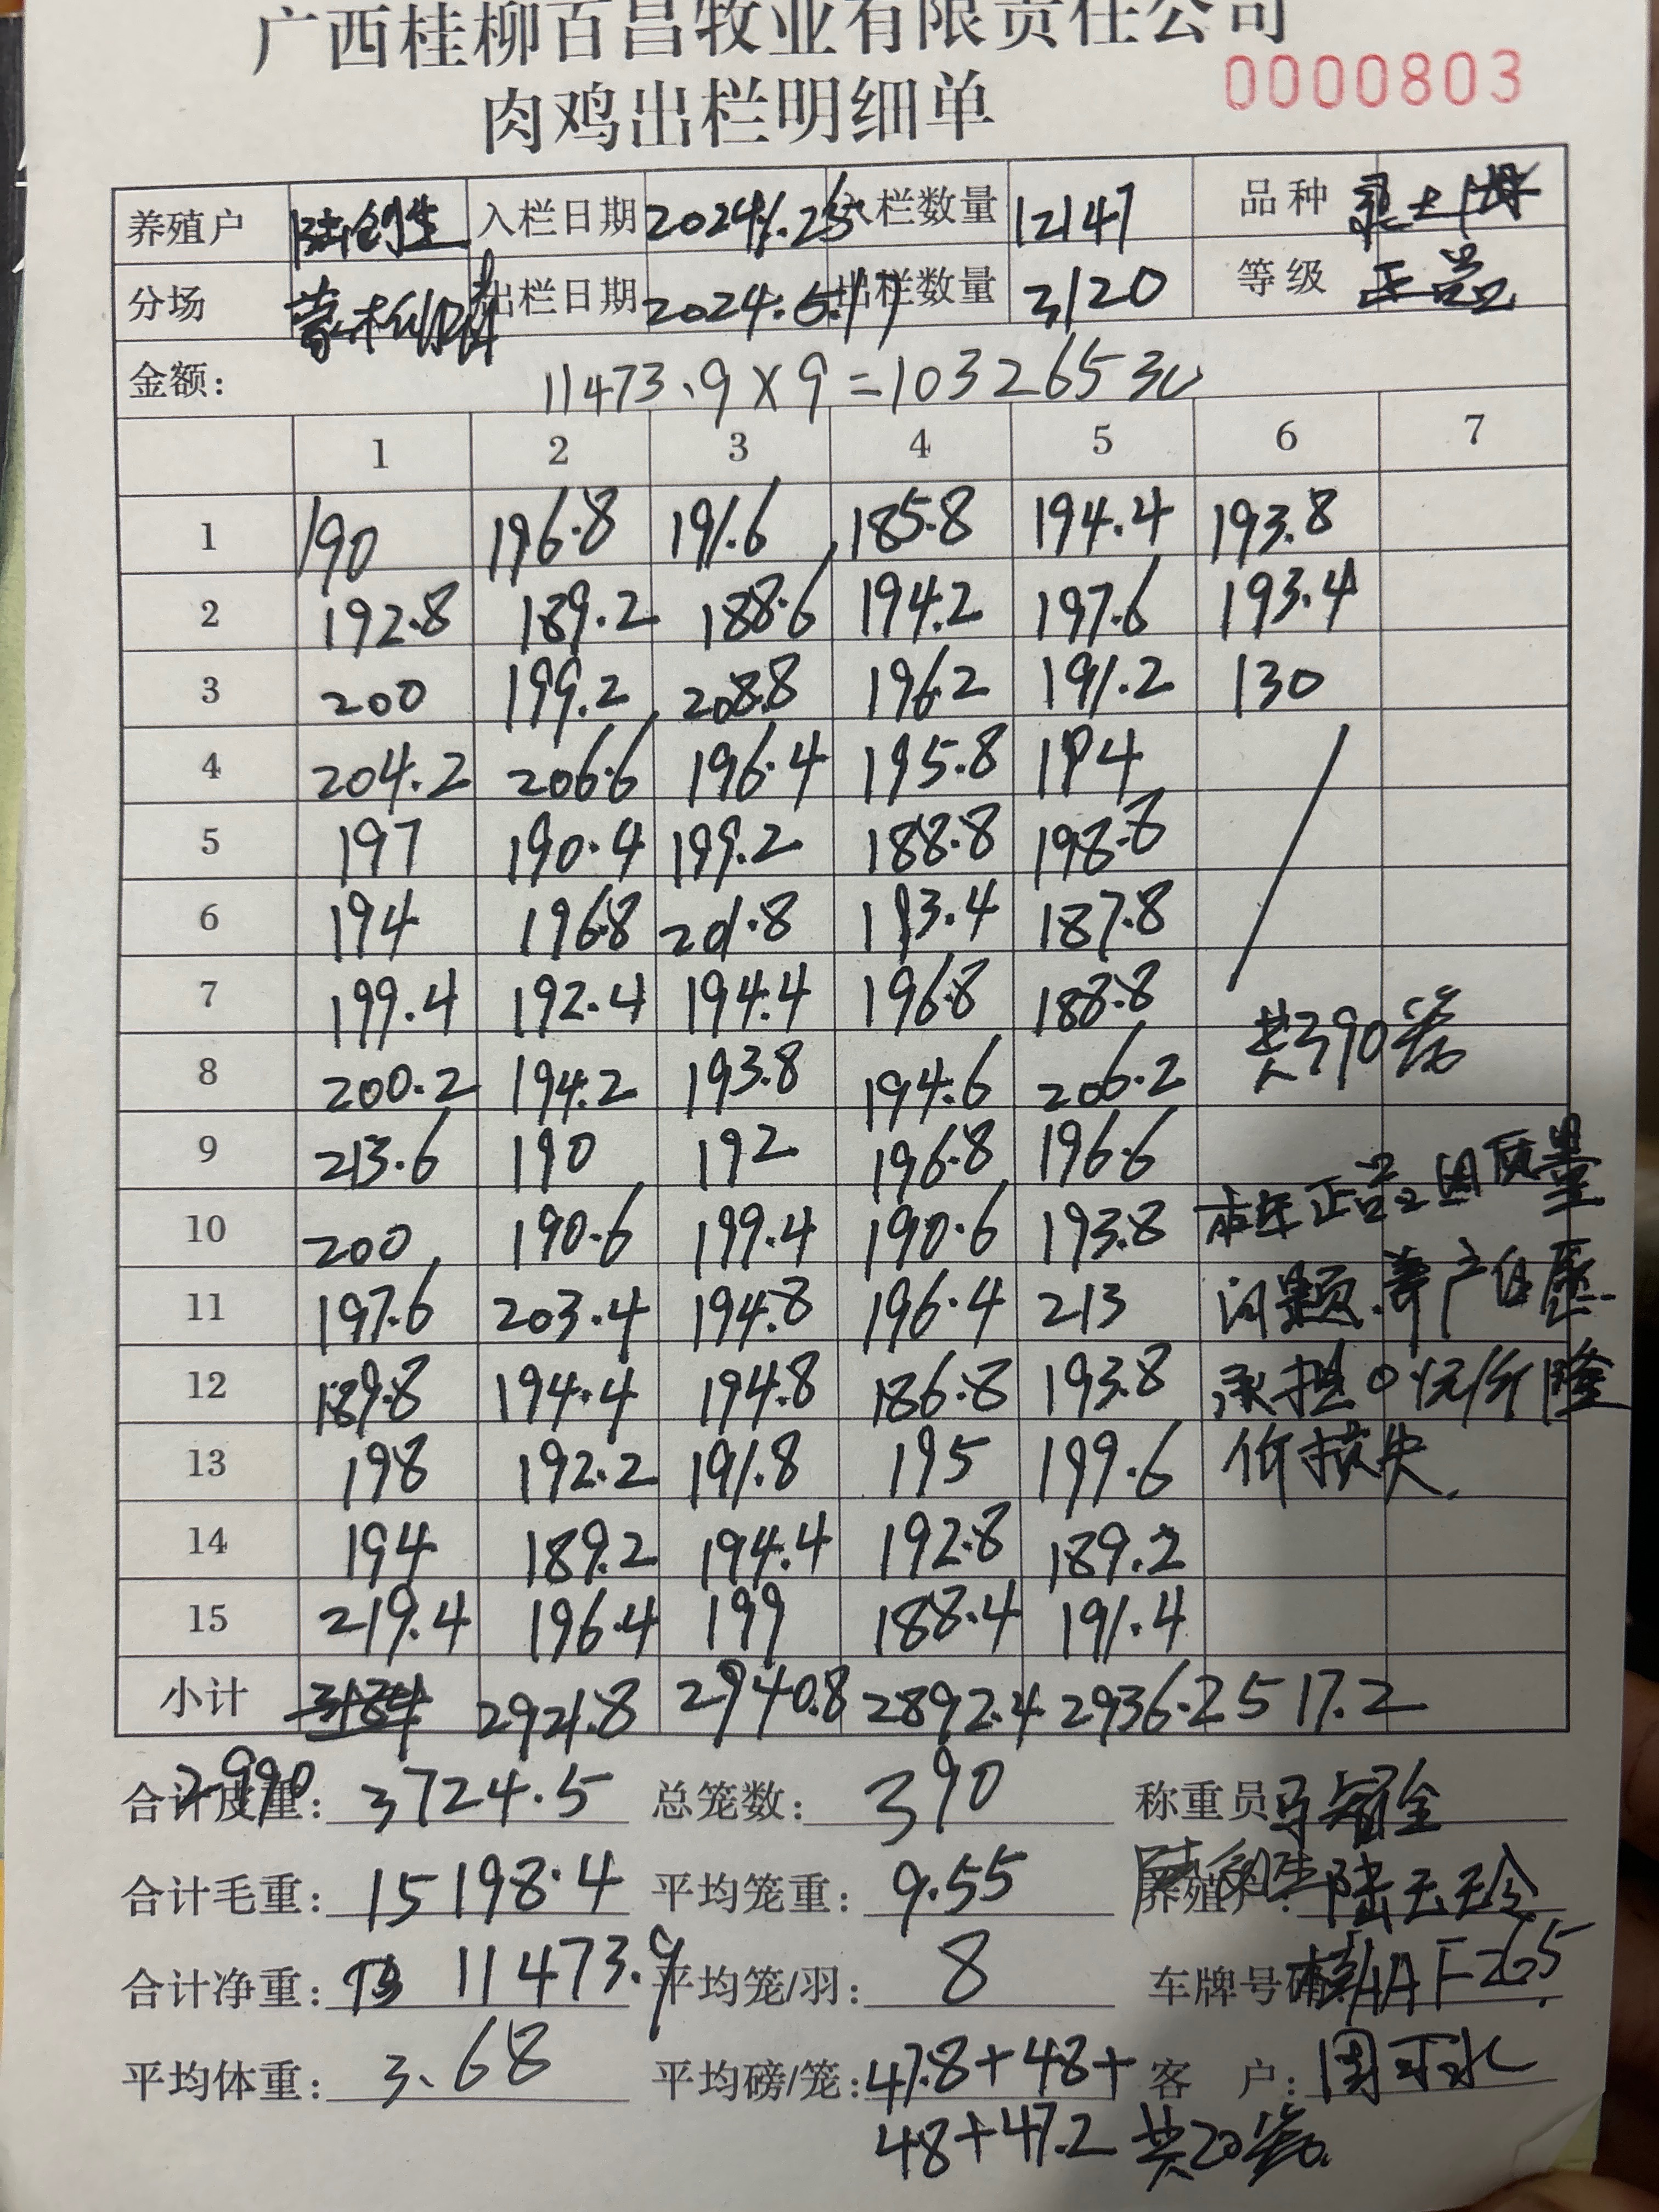 广西桂柳百昌牧业有限责任公司
肉鸡出栏明细单 0000803
养殖户 陆创生 入栏日期 2024.1.25 入栏数量 12147 品种 土
分场 出栏日期 2024.5.17 出栏数量 3120 等级 正品
金额: 11473.9×9=10326530
1 2 3 4 5 6 7
1 190 196.8 191.6 185.8 194.4 193.8
2 192.8 189.2 188.6 194.2 197.6 193.4
3 200 199.2 208.8 196.2 191.2 130
4 204.2 206.6 196.4 195.8 194
5 197 190.4 199.2 188.8 198.8
6 194 196.8 201.8 193.4 187.8
7 199.4 192.4 194.4 196.8 188.8
8 200.2 194.2 193.8 194.6 206.2 共390笼
9 213.6 190 192 196.8 196.6
10 200 190.6 199.4 190.6 193.8 本车正品因质量
11 197.6 203.4 194.8 196.4 213 问题.养户自愿
12 189.8 194.4 194.8 186.8 193.8 承担0.1元/斤降
13 198 192.2 191.8 195 199.6 价损失.
14 194 189.2 194.4 192.8 189.2
15 219.4 196.4 199 188.4 191.4
小计 2921.8 2940.8 2892.4 2936.2 517.2
2990
合计皮重: 3724.5 总笼数: 390 称重员
合计毛重: 15198.4 平均笼重: 9.55 养殖户: 陆
合计净重: 11473.9 平均笼/羽: 8 车牌号码: 桂AAF265
平均体重: 3.68 平均磅/笼: 47.8+48+ 客 户: 周
48+47.2 共20笼.